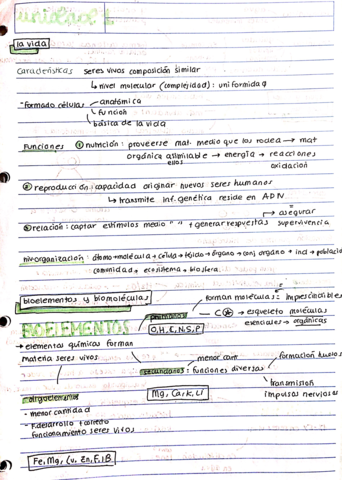 unidad 1
la vida
Características seres vivos composición similar
↳ nivel molecular (complejidad): uniformidad
-formado células anatómica
función
básica de la vida
Funciones ① nutrición: proveerse mat. medio que los rodea → mat
orgánica asimilable → energía → reacciones
oxidación
② reproducción: capacidad originar nuevos seres humanos
↳ transmite inf. genética reside en ADN
→ asegurar
③ relación: captar estímulos medio " " + generar respuestas supervivencia
niv. organización: átomo→molécula→célula→tejido→órgano→conj órgano → ind → población
comunidad → ecosistema → biosfera.
bioelementos y biomoléculas
forman moléculas: imprescindibles
BIOELEMENTOS primarios C → esqueleto moléculas
O, H, C, N, S, P esenciales → orgánicas
→ elementos químicos forman
materia seres vivos menor cant formación huesos
secundarios: funciones diversas
oligoelementos transmisión
- menor cantidad Mg, Ca, K, Li impulsos nerviosos
desarrollo + correcto
funcionamiento seres vivos
Fe, Mg, Cu, Zn, F, I, B